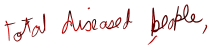 total diseased people,